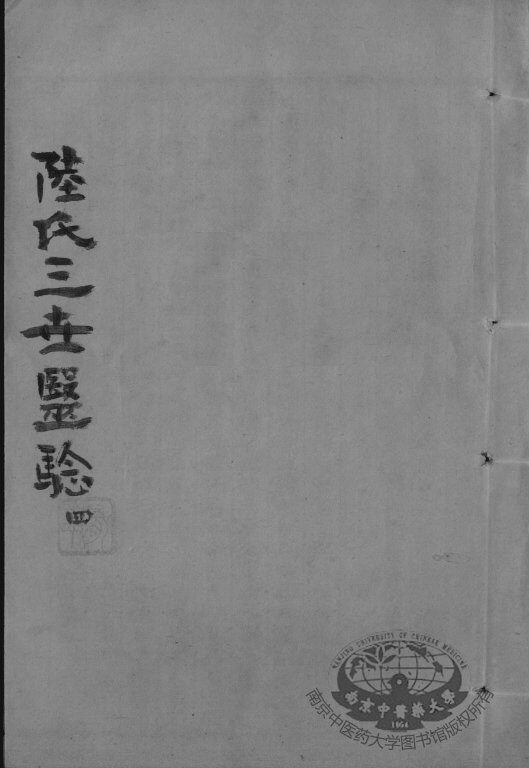 陸氏三世毉騐
四
NANJING UNIVERSITY OF CHINESE MEDICINE
南京中醫藥大學
1954
南京中医药大学图书馆版权所有